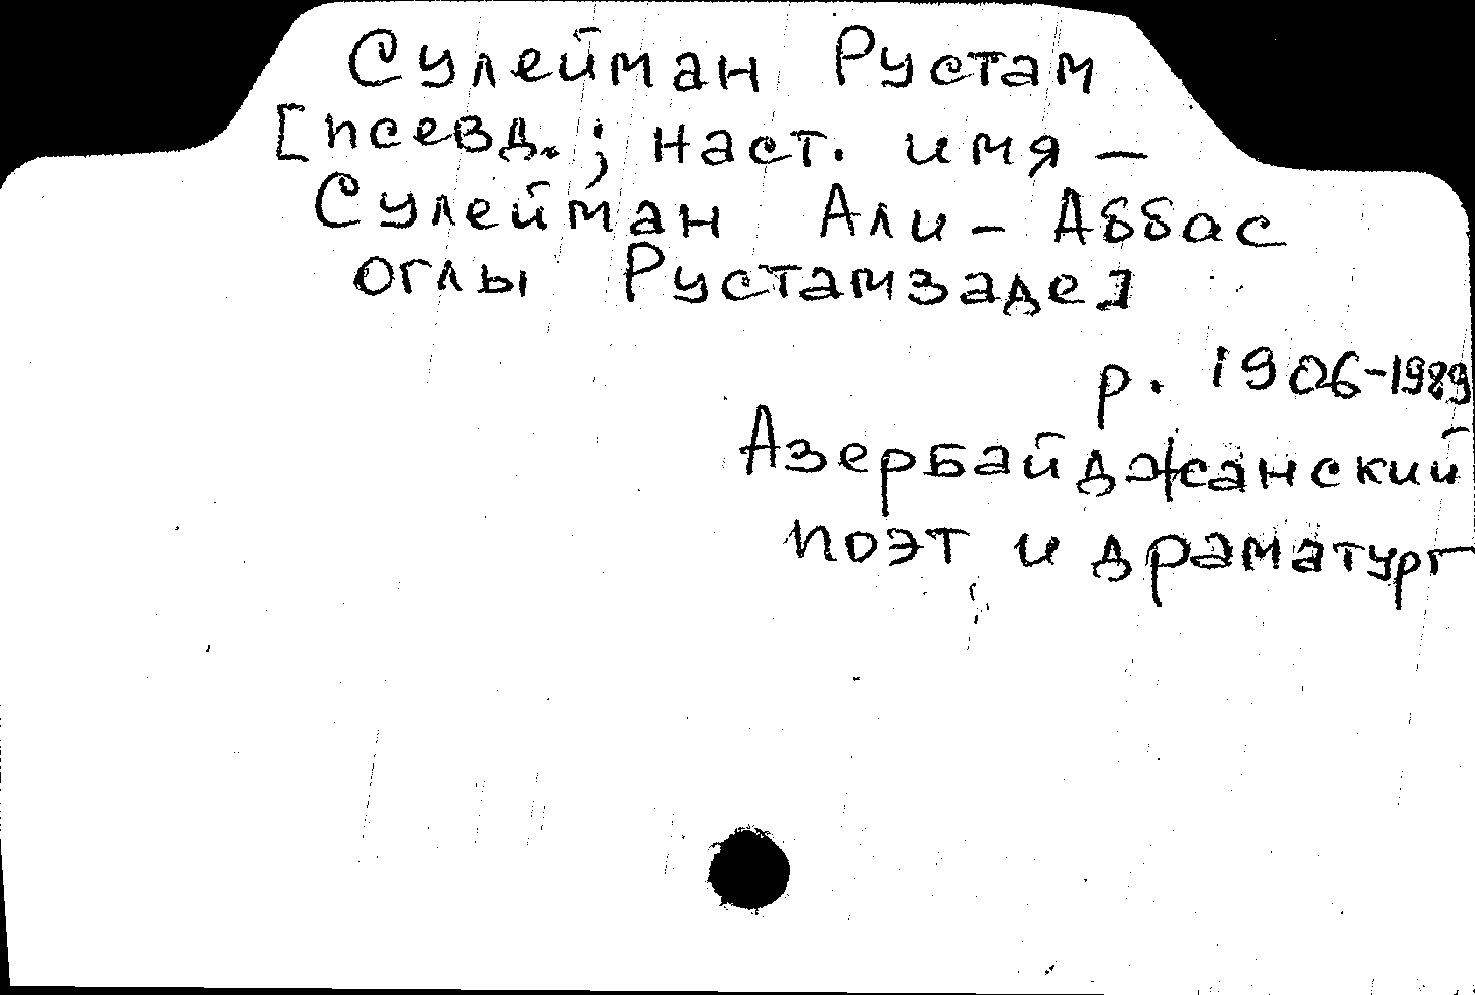 Сулейман Рустам
[псевд.; наст. имя –
Сулейман Али – Аббас
оглы Рустамзаде]
р. 1906-1989
Азербайджанский
поэт и драматург